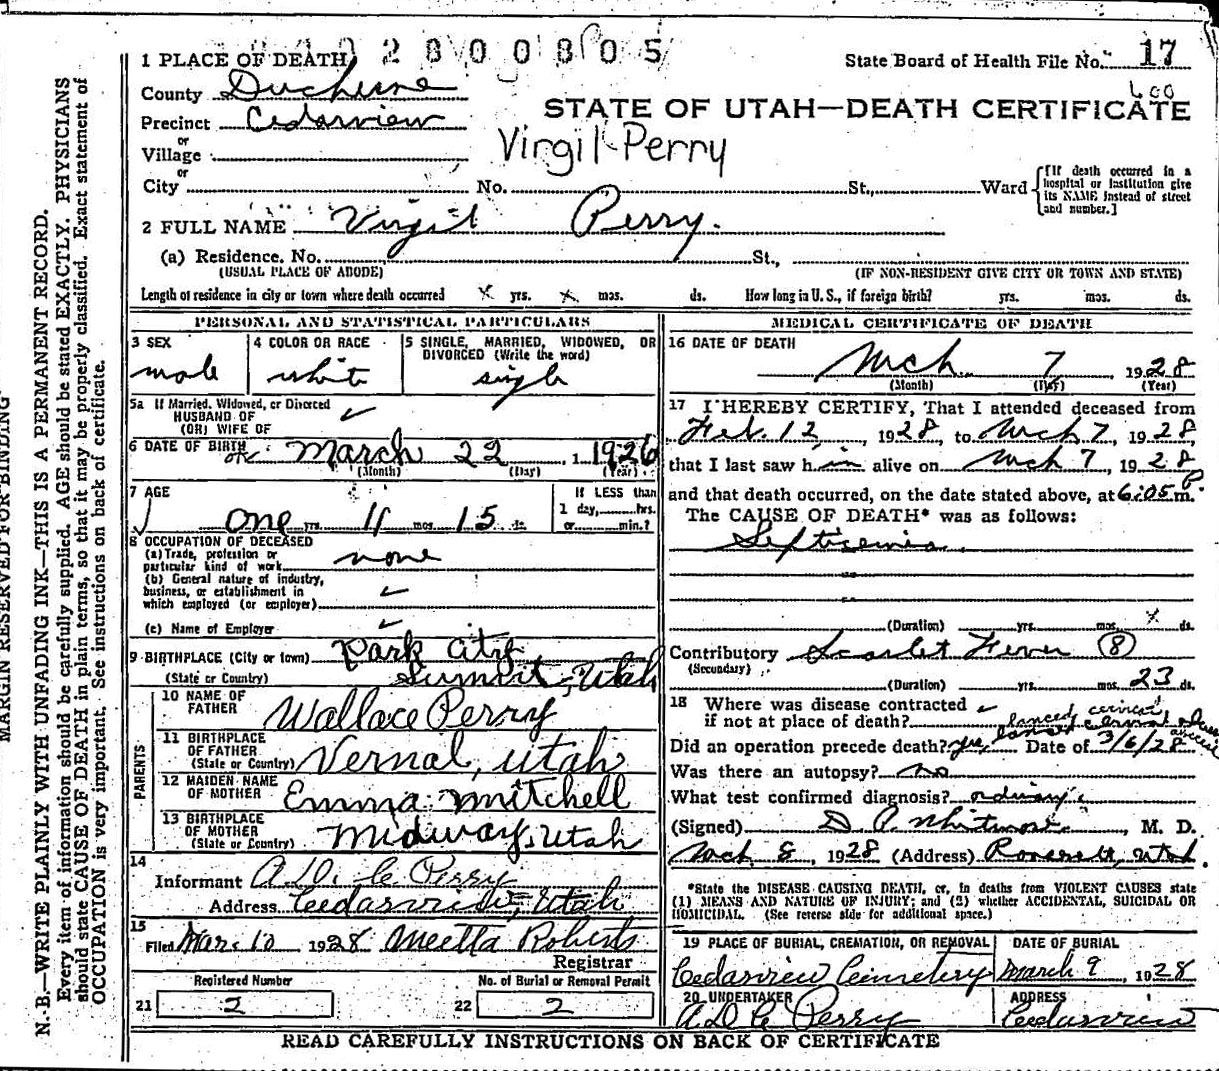 2800805
1 PLACE OF DEATH State Board of Health File No. 17
County Duchesne 600
STATE OF UTAH—DEATH CERTIFICATE
Precinct Cedarview
or
Village Virgil Perry
or
City No. St., Ward [If death occurred in a hospital or institution give its NAME instead of street and number.]
2 FULL NAME Virgil Perry.
(a) Residence. No. St.,
(USUAL PLACE OF ABODE) (IF NON-RESIDENT GIVE CITY OR TOWN AND STATE)
Length of residence in city or town where death occurred yrs. mos. ds. How long in U. S., if foreign birth? yrs. mos. ds.
PERSONAL AND STATISTICAL PARTICULARS
3 SEX
male
4 COLOR OR RACE
white
5 SINGLE, MARRIED, WIDOWED, OR
DIVORCED (Write the word)
single
5a If Married, Widowed, or Divorced
HUSBAND OF
(OR) WIFE OF
6 DATE OF BIRTH March 22 1926
(Month) (Day) (Year)
7 AGE
one yrs. 11 mos. 15 ds.
If LESS than
1 day, hrs.
or min.?
8 OCCUPATION OF DECEASED
(a) Trade, profession or
particular kind of work none
(b) General nature of industry,
business, or establishment in
which employed (or employer)
(c) Name of Employer
9 BIRTHPLACE (City or town) Park City
(State or Country) Summit, Utah
PARENTS
10 NAME OF
FATHER Wallace Perry
11 BIRTHPLACE
OF FATHER
(State or Country) Vernal, Utah
12 MAIDEN NAME
OF MOTHER Emma Mitchell
13 BIRTHPLACE
OF MOTHER
(State or Country) Midway, Utah
14
Informant A.D. C. Perry
Address Cedarview, Utah
15
Filed Mar. 10 1928 Meetta Roberts
Registrar
Registered Number
21 2
No. of Burial or Removal Permit
22 2
MEDICAL CERTIFICATE OF DEATH
16 DATE OF DEATH
Mch 7 1928
(Month) (Day) (Year)
17 I HEREBY CERTIFY, That I attended deceased from
Feb. 12, 1928, to Mch 7, 1928,
that I last saw him alive on Mch 7, 1928
and that death occurred, on the date stated above, at 6:05 P m.
The CAUSE OF DEATH* was as follows:
Septicemia
(Duration) yrs. mos. ds.
Contributory Scarlet Fever (8)
(Secondary)
(Duration) yrs. mos. 23 ds.
18 Where was disease contracted
if not at place of death?
lanced cervical abscess
Did an operation precede death? yes Date of 3/6/28
Was there an autopsy? no
What test confirmed diagnosis?
(Signed) D. P. Whitmore, M. D.
Mch 8, 1928 (Address) Roosevelt, Utah.
*State the DISEASE CAUSING DEATH, or, in deaths from VIOLENT CAUSES state
(1) MEANS AND NATURE OF INJURY; and (2) whether ACCIDENTAL, SUICIDAL OR
HOMICIDAL. (See reverse side for additional space.)
19 PLACE OF BURIAL, CREMATION, OR REMOVAL
Cedarview Cemetery
DATE OF BURIAL
March 9 1928
20 UNDERTAKER
A.D. C. Perry
ADDRESS
Cedarview
READ CAREFULLY INSTRUCTIONS ON BACK OF CERTIFICATE
MARGIN RESERVED FOR BINDING
N. B.—WRITE PLAINLY WITH UNFADING INK—THIS IS A PERMANENT RECORD.
Every item of information should be carefully supplied. AGE should be stated EXACTLY. PHYSICIANS
should state CAUSE OF DEATH in plain terms, so that it may be properly classified. Exact statement of
OCCUPATION is very important. See instructions on back of certificate.